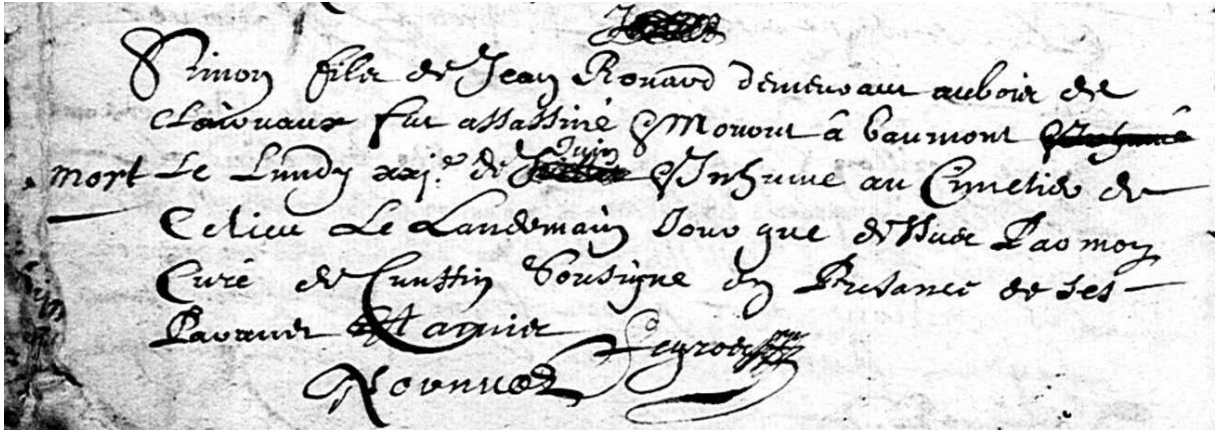 Simon fils de Jean Rouaud demeurant au bois de
Clairvaux fut assassiné & Mourut â baumont
mort Le Lundy xxj.e de Juin & Inhume au Cimetiere de
Ce lieu Le Landemain Jour que dessus Par moy
Curé de Soussigne en Presance de ses
Parans &